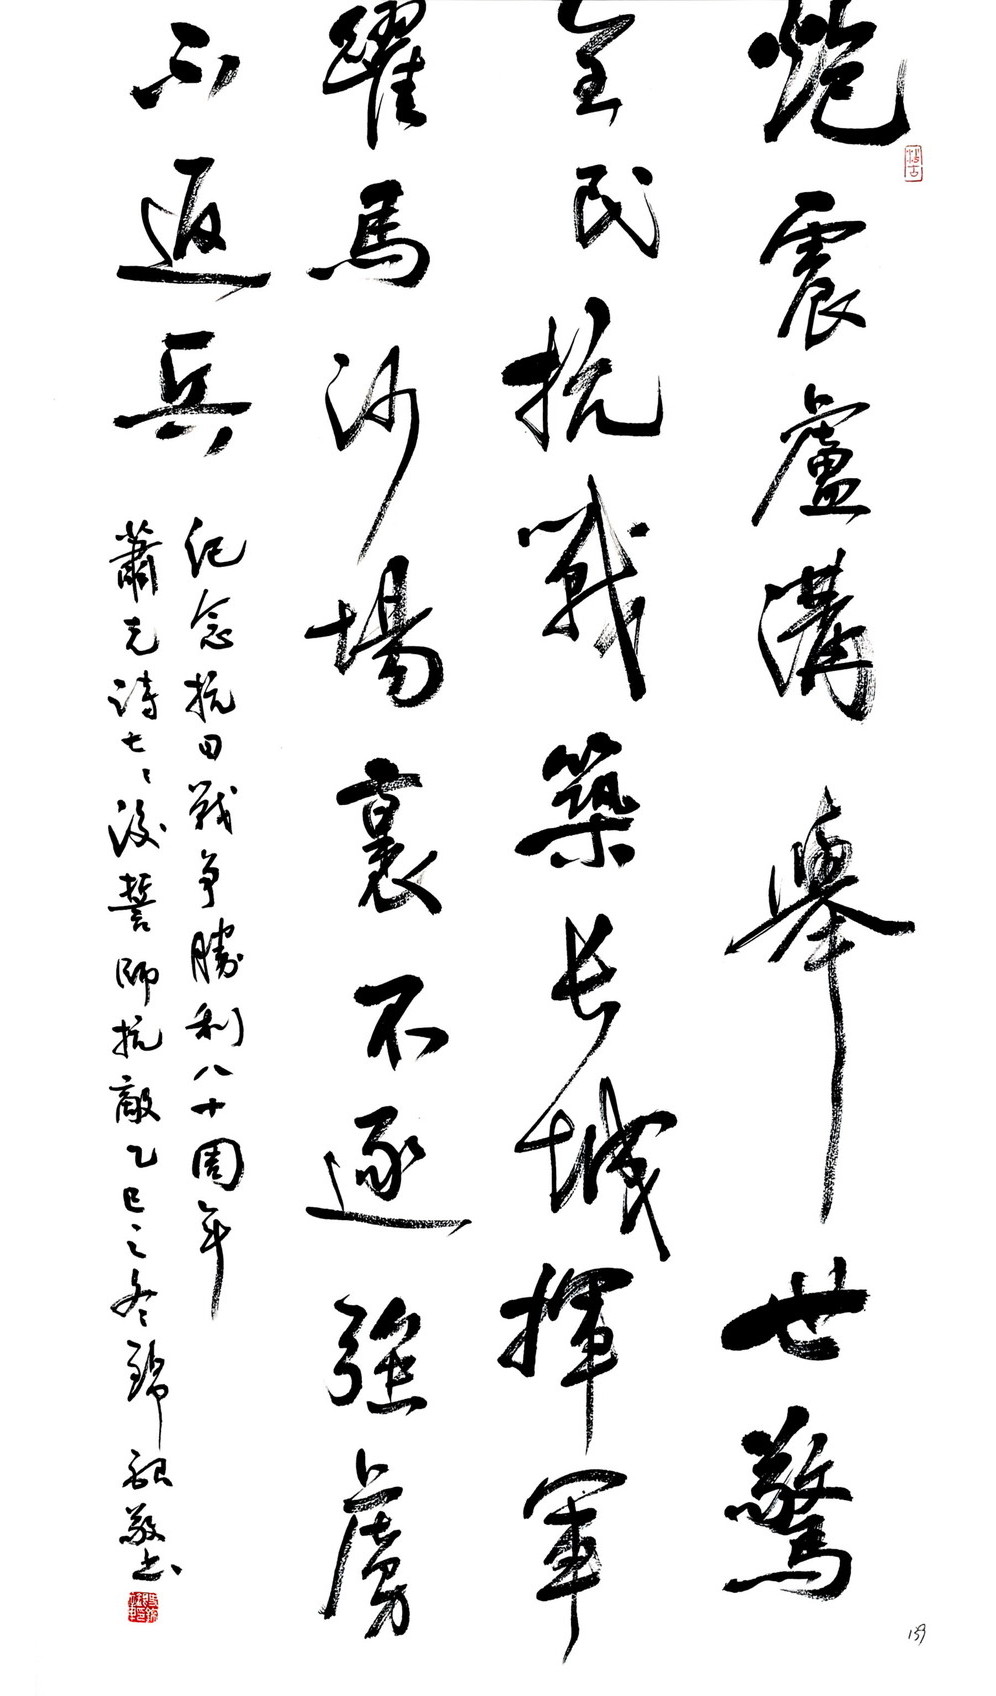 炮震盧溝舉世驚
全民抗戰築长城揮軍
躍馬沙場裏不逐強虜
不返兵
紀念抗日戰争勝利八十周年
蕭克詩七七後誓師抗敵乙巳之冬錦敬书
159